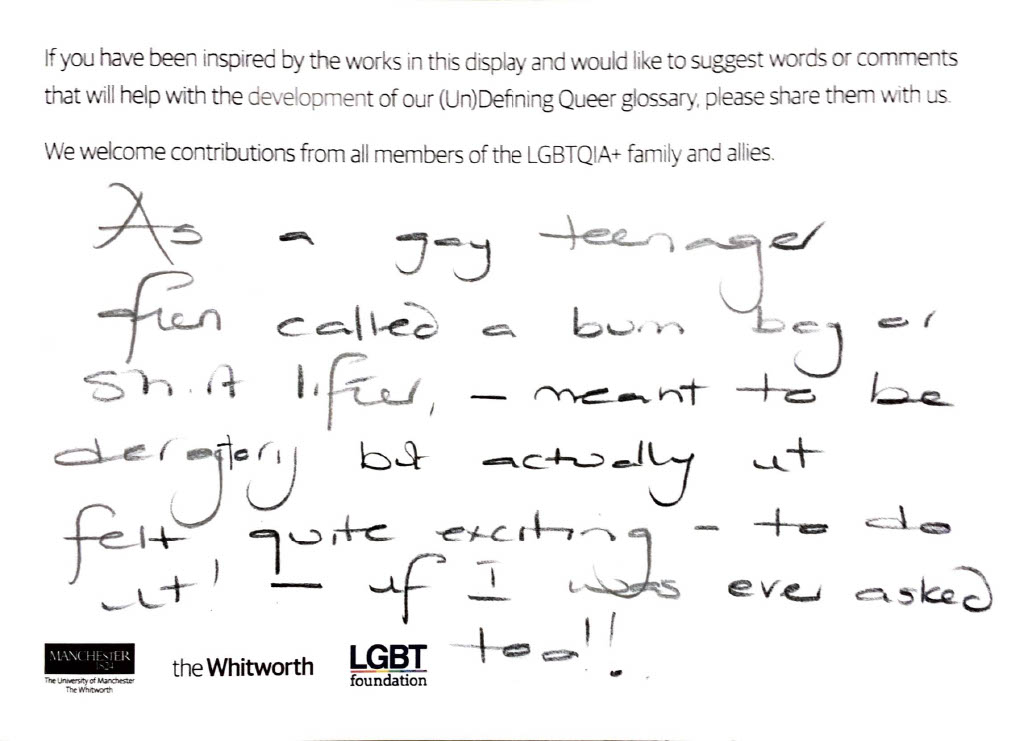 If you have been inspired by the works in this display and would like to suggest words or comments
that will help with the development of our (Un)Defining Queer glossary, please share them with us.
We welcome contributions from all members of the LGBTQIA+ family and allies.
As a gay teenager
often called a bum boy or
shit lifter, - meant to be
derogatory but actually it
felt quite exciting - to do
it! - if I was ever asked
too!!
MANCHESTER
1824
The University of Manchester
The Whitworth
the Whitworth
LGBT
foundation